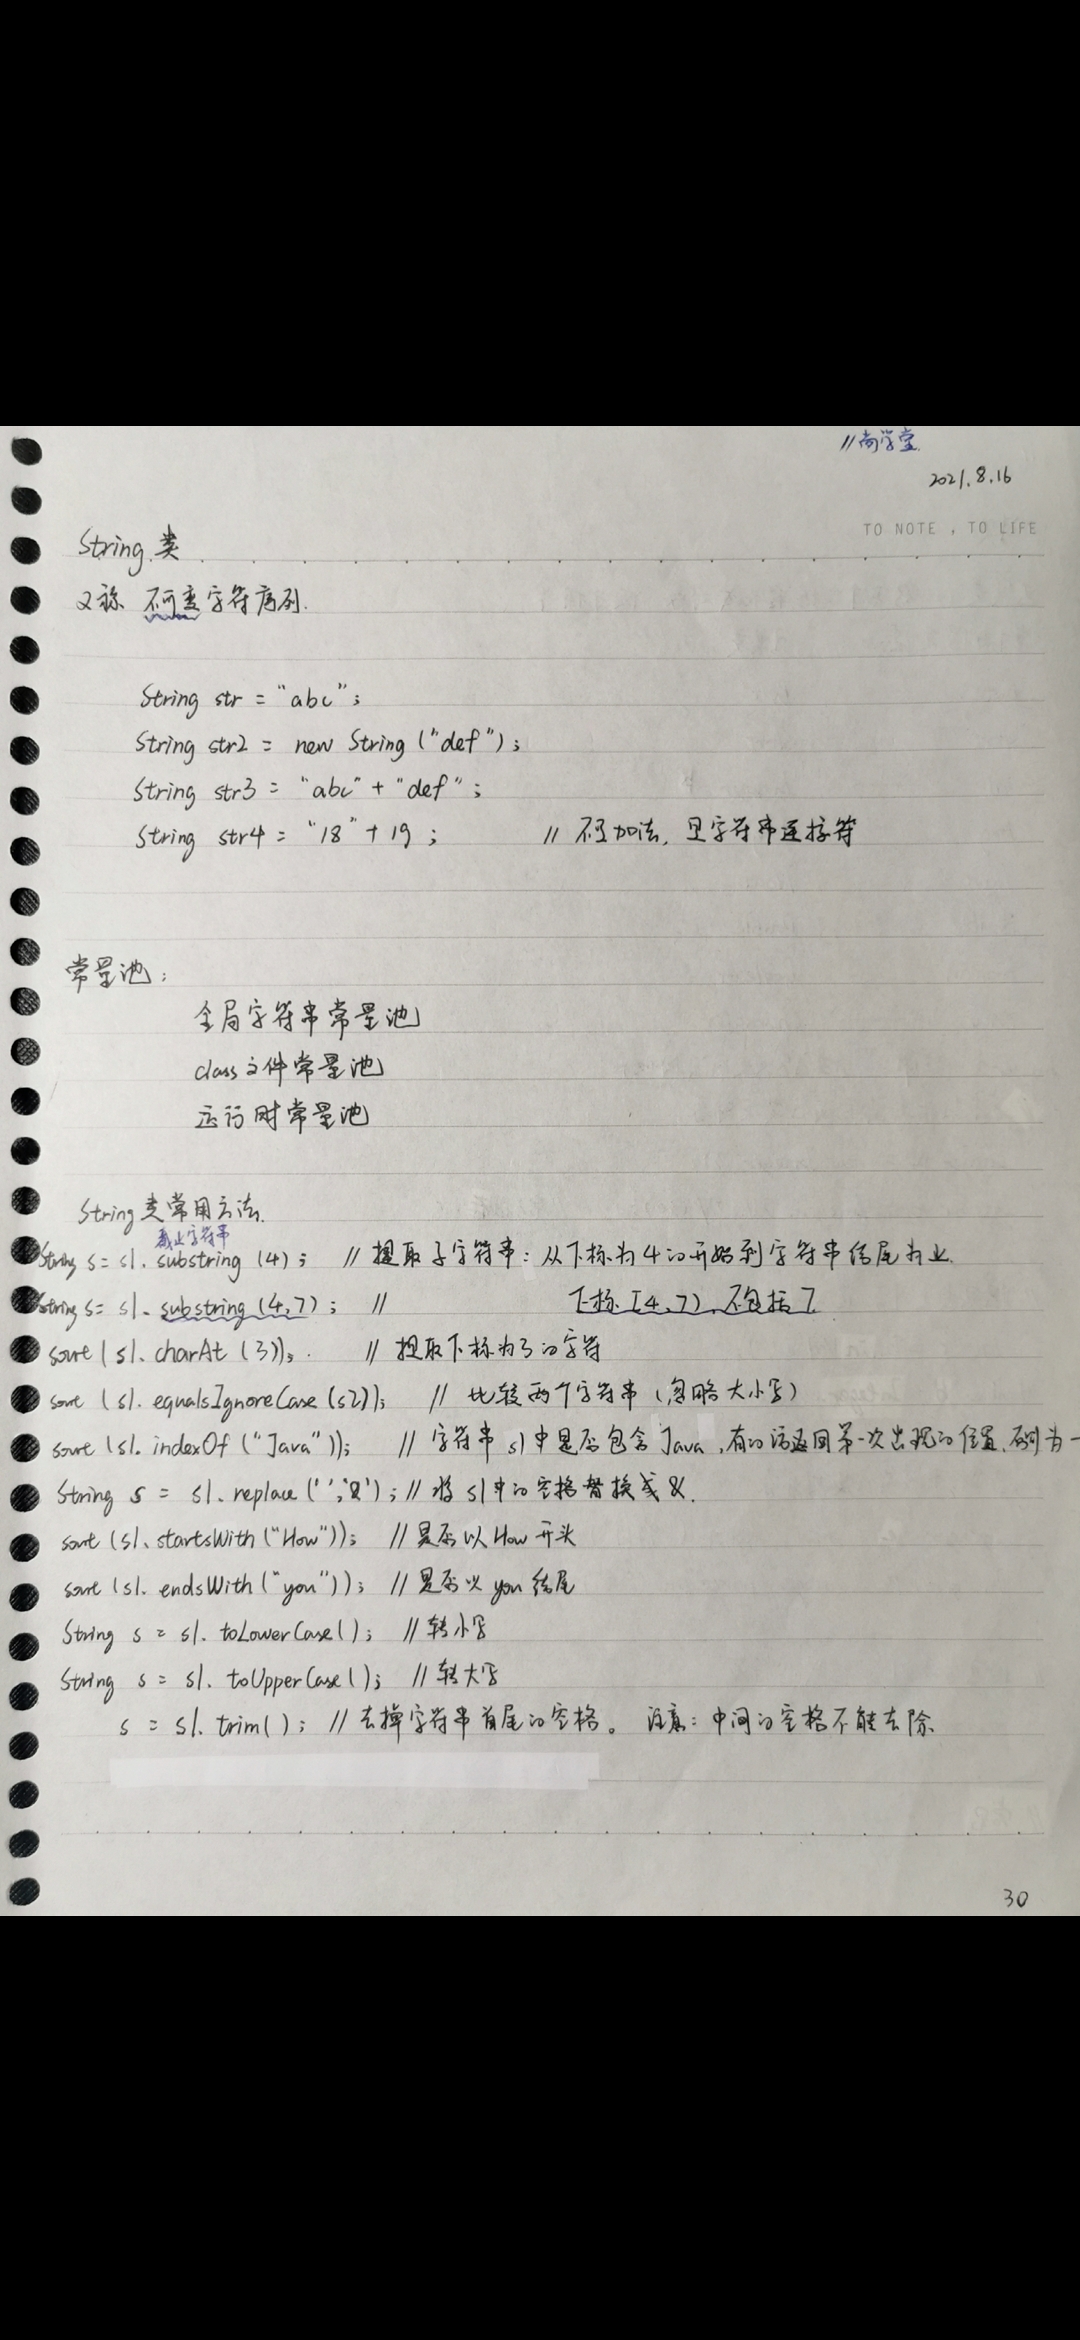 //尚学堂.
2021.8.16
TO NOTE , TO LIFE
String 类
又称 不可变字符序列.
String str = "abc";
String str2 = new String ("def");
String str3 = "abc" + "def";
String str4 = "18" + 19 ; // 不是加法, 是字符串连接符
常量池:
全局字符串常量池
class文件常量池
运行时常量池
String类常用方法.
截止字符串
String s = s1. substring (4); // 提取子字符串: 从下标为4的开始到字符串结尾为止.
String s = s1. substring (4,7); // 下标 [4,7), 不包括7
sout (s1. charAt (3)); // 提取下标为3的字符
sout (s1. equalsIgnoreCase (s2)); // 比较两个字符串 (忽略大小写)
sout (s1. indexOf ("Java")); // 字符串 s1中是否包含Java, 有的话返回第一次出现的位置, 否则为-
String s = s1. replace (' ','&'); // 将 s1中的空格替换成 &.
sout (s1. startsWith ("How")); // 是否以How开头
sout (s1. endsWith ("you")); // 是否以 you结尾
String s = s1. toLowerCase (); // 转小写
String s = s1. toUpperCase (); // 转大写
s = s1. trim(); // 去掉字符串首尾的空格。 注意: 中间的空格不能去除
30